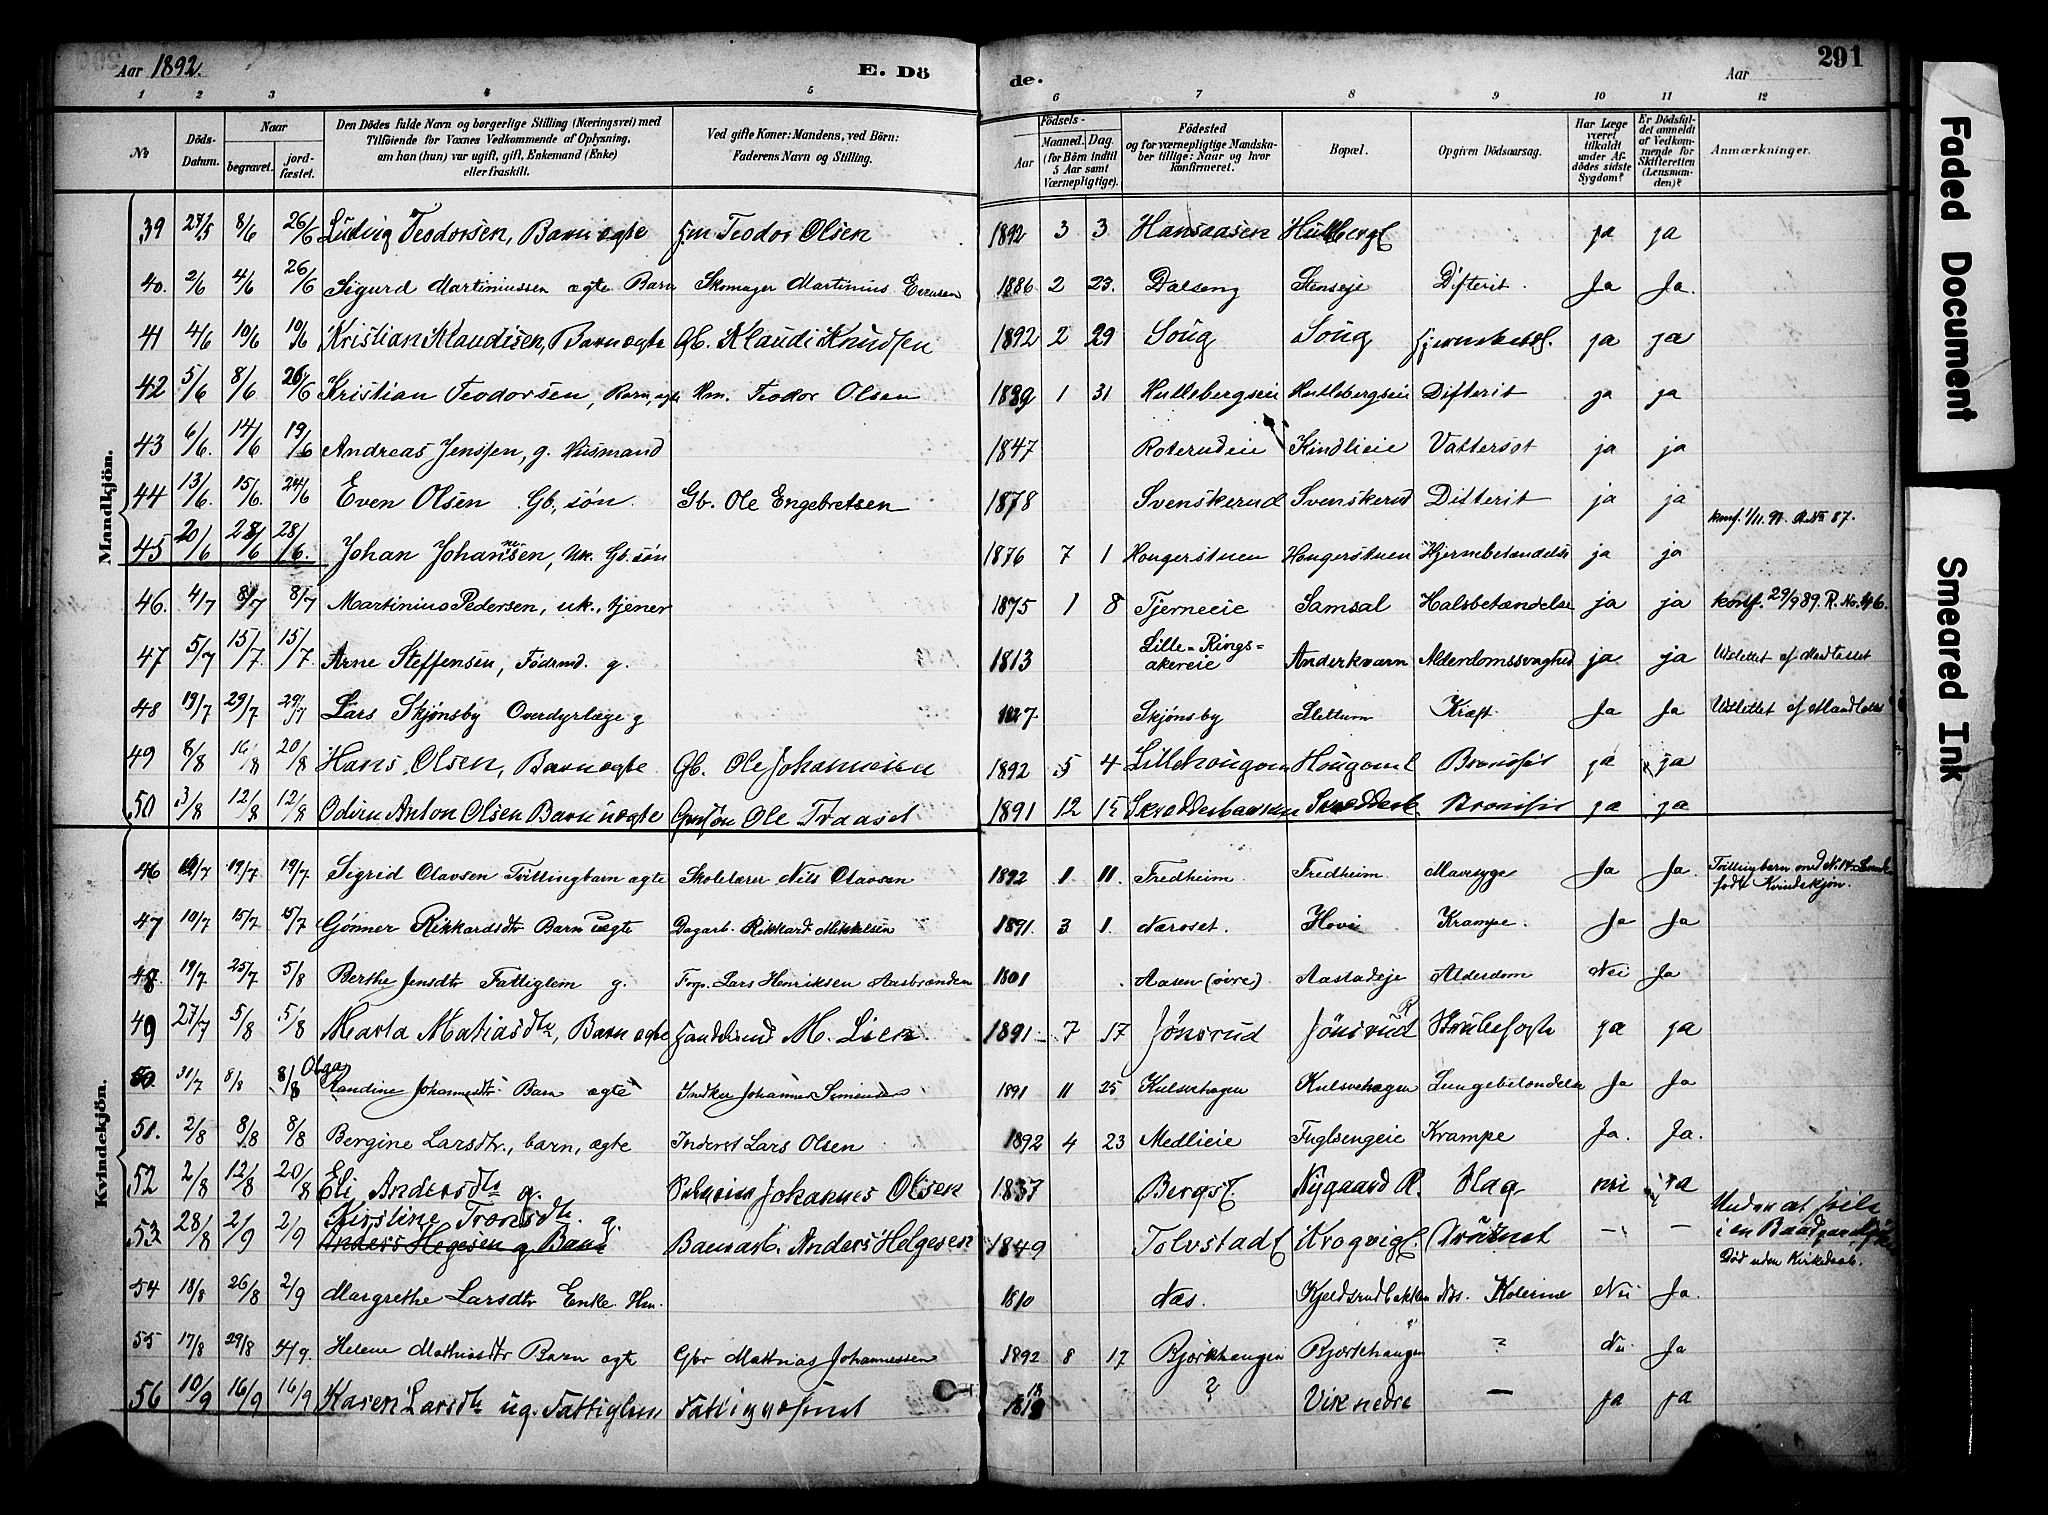 Aar 1892. E. Dö de. Aar 291
1 2 3 4 5 6 7 8 9 10 11 12
No Döds-Datum. Naar begravet. jord-fæstet. Den Dödes fulde Navn og borgerlige Stilling (Næringsvei) med Tilföiende for Voxnes Vedkommende af Oplysning, om han (hun) var ugift, gift, Enkemand (Enke) eller fraskilt. Ved gifte Koner: Mandens, ved Börn: Faderens Navn og Stilling. Födsels- Aar Maaned. Dag. (for Börn indtil 5 Aar samt Værnepligtige). Födested og for værnepligtige Mandskaber tillige: Naar og hvor konfirmeret. Bopæl. Opgiven Dödsaarsag. Har Læge været tilkaldt under Afdödes sidste Sygdom? Er Dödsfaldet anmeldt af Vedkommende for Skifteretten (Lensmanden)? Anmærkninger.
Mandkjön.
39 27/5 8/6 26/6 Ludvig Teodorsen, Barn ægte Hm Teodor Olsen 1892 3 3 Hansaasen ja ja
40. 2/6 4/6 26/6 Sigurd Martiniussen ægte Barn Skomager Martinius Evensen 1886 2 23. Dalseng Stenseje Difterit. Ja Ja.
41 4/6 10/6 10/6 Kristian Klaudisen, Barn ægte Gb. Klaudi Knudsen 1892 2 29 Soug Soug ja ja
42 5/6 8/6 26/6 Kristian Teodorsen, Barn, ægte Hm. Teodor Olsen 1889 1 31 Hullebergseie Hullebergseie Difterit ja ja
43 6/6. 14/6 19/6 Andreas Jenssen, g. Husmand 1847 Roterudeie Kindlieie Vattersot ja ja
44 13/6. 15/6. 24/6 Even Olsen Gb. søn. Gb. Ole Engebretsen 1878 Svenskerud Svenskerud Difterit ja ja
konf. 1/11. 91. R. No 87.
45 20/6 28/6 28/6. Johan Johannesen, uk. Gb. søn 1876 7 1 Hongerstuen Hongerstuen Hjernebetændelse ja ja
46. 4/7 8/7 8/7 Martinius Pedersen, uk., tjener 1875 1 8 Tjerneeie Samsal Halsbetændelse ja ja konf. 29/9 89. R. No. 46.
47 5/7 15/7. 15/7. Arne Steffensen, Födrmd. g. 1813 Lille-Rings-akereie Anderkvarn Alderdomssvaghed ja ja Udslettet af Mandtallet
48 19/7 29/7 29/7 Lars Skjønsby Overdyrlæge g 1827 Skjønsby Slettum Kræft. Ja Ja Udslettet af Mandtallet
49 8/8 16/8 20/8 Hans Olsen, Barn ægte Gb. Ole Johannesen 1892 5 4 ja ja
50 3/8 12/8 12/8 Odin Anton Olsen Barn uægte Ole Traaset 1891 12 15 ja ja
Kvindekjön.
46 19/7 19/7 Sigrid Olavsen Tvillingbarn ægte Skolelærer Nils Olavsen 1892 1 11. Fredheim. Fredheim. Mavesyge Ja Ja. Tvillingbarn med N. 14
født Kvindekjøn.
47 10/7 15/7 15/7 Gönner Rikkardsdtr Barn uægte Dagarb. Rikkard Mikkelsen 1891. 3. 1. Næroset. Hovi Krampe. Ja Ja
48. 19/7 25/7 5/8 Berthe Jensdtr Fattiglem g. Forp. Lars Henriksen Aasbrænden 1801 Aasen (øvre) Aastadeje Alderdom Nei Ja
49 27/7 5/8 5/8 Marta Matiasdtr, Barn ægte Handelsmd M. Lien. 1891 7 17 Jönsrud Jönsrud Strubehoste ja ja
50. 31/7 8/8 8/8 Olga Randine Johannesdtr Barn ægte Inderst Johannes Simensen 1891 11 25 Kulsvehagen Kulsvehagen Lungebetændelse Ja Ja
51. 2/8 8/8 8/8 Bergine Larsdtr., barn, ægte Inderst Lars Olsen 1892 4 23 Medlieie Fuglsengeie Krampe Ja. Ja.
52 2/8 12/8 20/8 Eli Andersdtr g. Johannes Olsen 1837 Nygaard R. Slag nei ja
53 28/8 2/9 2/9 Kirstine Tronsdtr. g. Anders Hegesen g. Bane Banearb. Anders Helgesen 1849 Druknet – –
Under at seile i en Baad paa Mjösen.
Död uden Kirkedaab.
54 18/8 26/8 2/9 Margrethe Larsdtr Enke. Hm. 1810 Næs. Kjeldsrudbakken Næs. Kolerine Nei Ja.
55 17/8 29/8 4/9. Helene Mathiasdtr Barn ægte Gbr Mathias Johannessen 1892 8 17 Bjørkhaugen Bjørkhaugen ? Nei. Ja
56 10/9 16/9 16/9 Karen Larsdtr ug. Fattiglem Fattiglem 1818 ? Vik nedre – ja ja
Faded Document
Smeared Ink